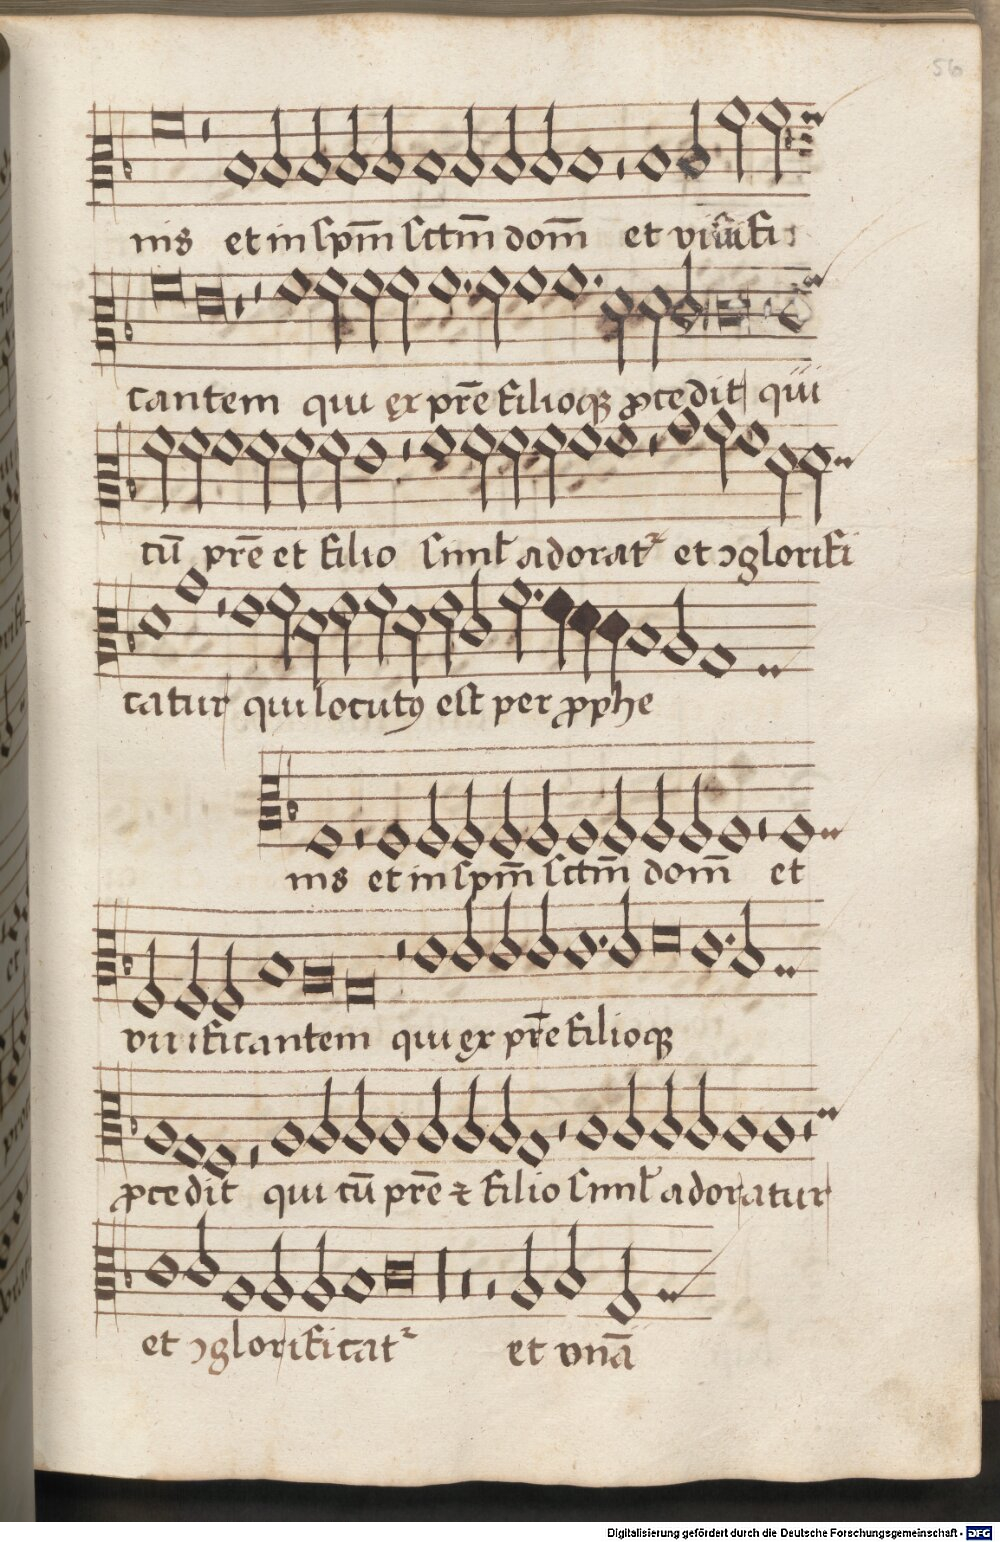 56
nis et in spm̄ sctm̄ dom̄ et vivifi
cantem qui ex pr̄e filioqꝫ ꝓcedit qui
cū pr̄e et filio simł adoratᷣ et ꝯglorifi
catur qui locutꝰ est per ꝓphe
nis et in spm̄ sctm̄ dom̄ et
vivificantem qui ex pr̄e filioqꝫ
ꝓcedit qui cū pr̄e ⁊ filio simł adoratur
et ꝯglorificatᷣ et vnā
Digitalisierung gefördert durch die Deutsche Forschungsgemeinschaft - DFG